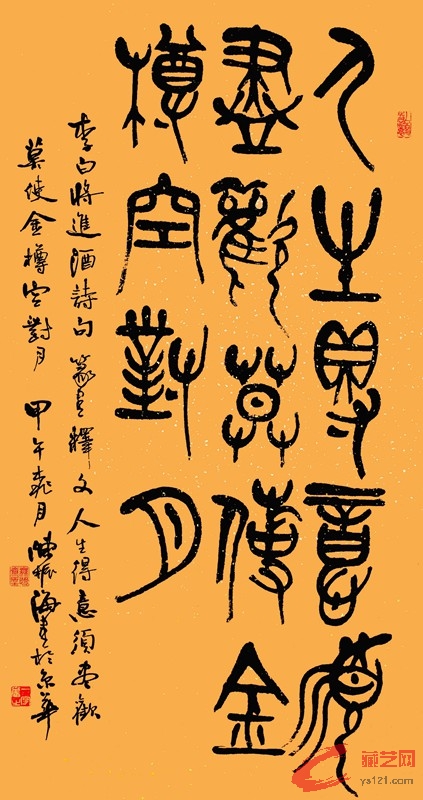 人生得意須
盡歡莫使金
樽空對月
李白將進酒詩句 篆書釋文 人生得意須盡歡
莫使金樽空對月 甲午月 陳振海書於京華
藏艺网
ys121.com